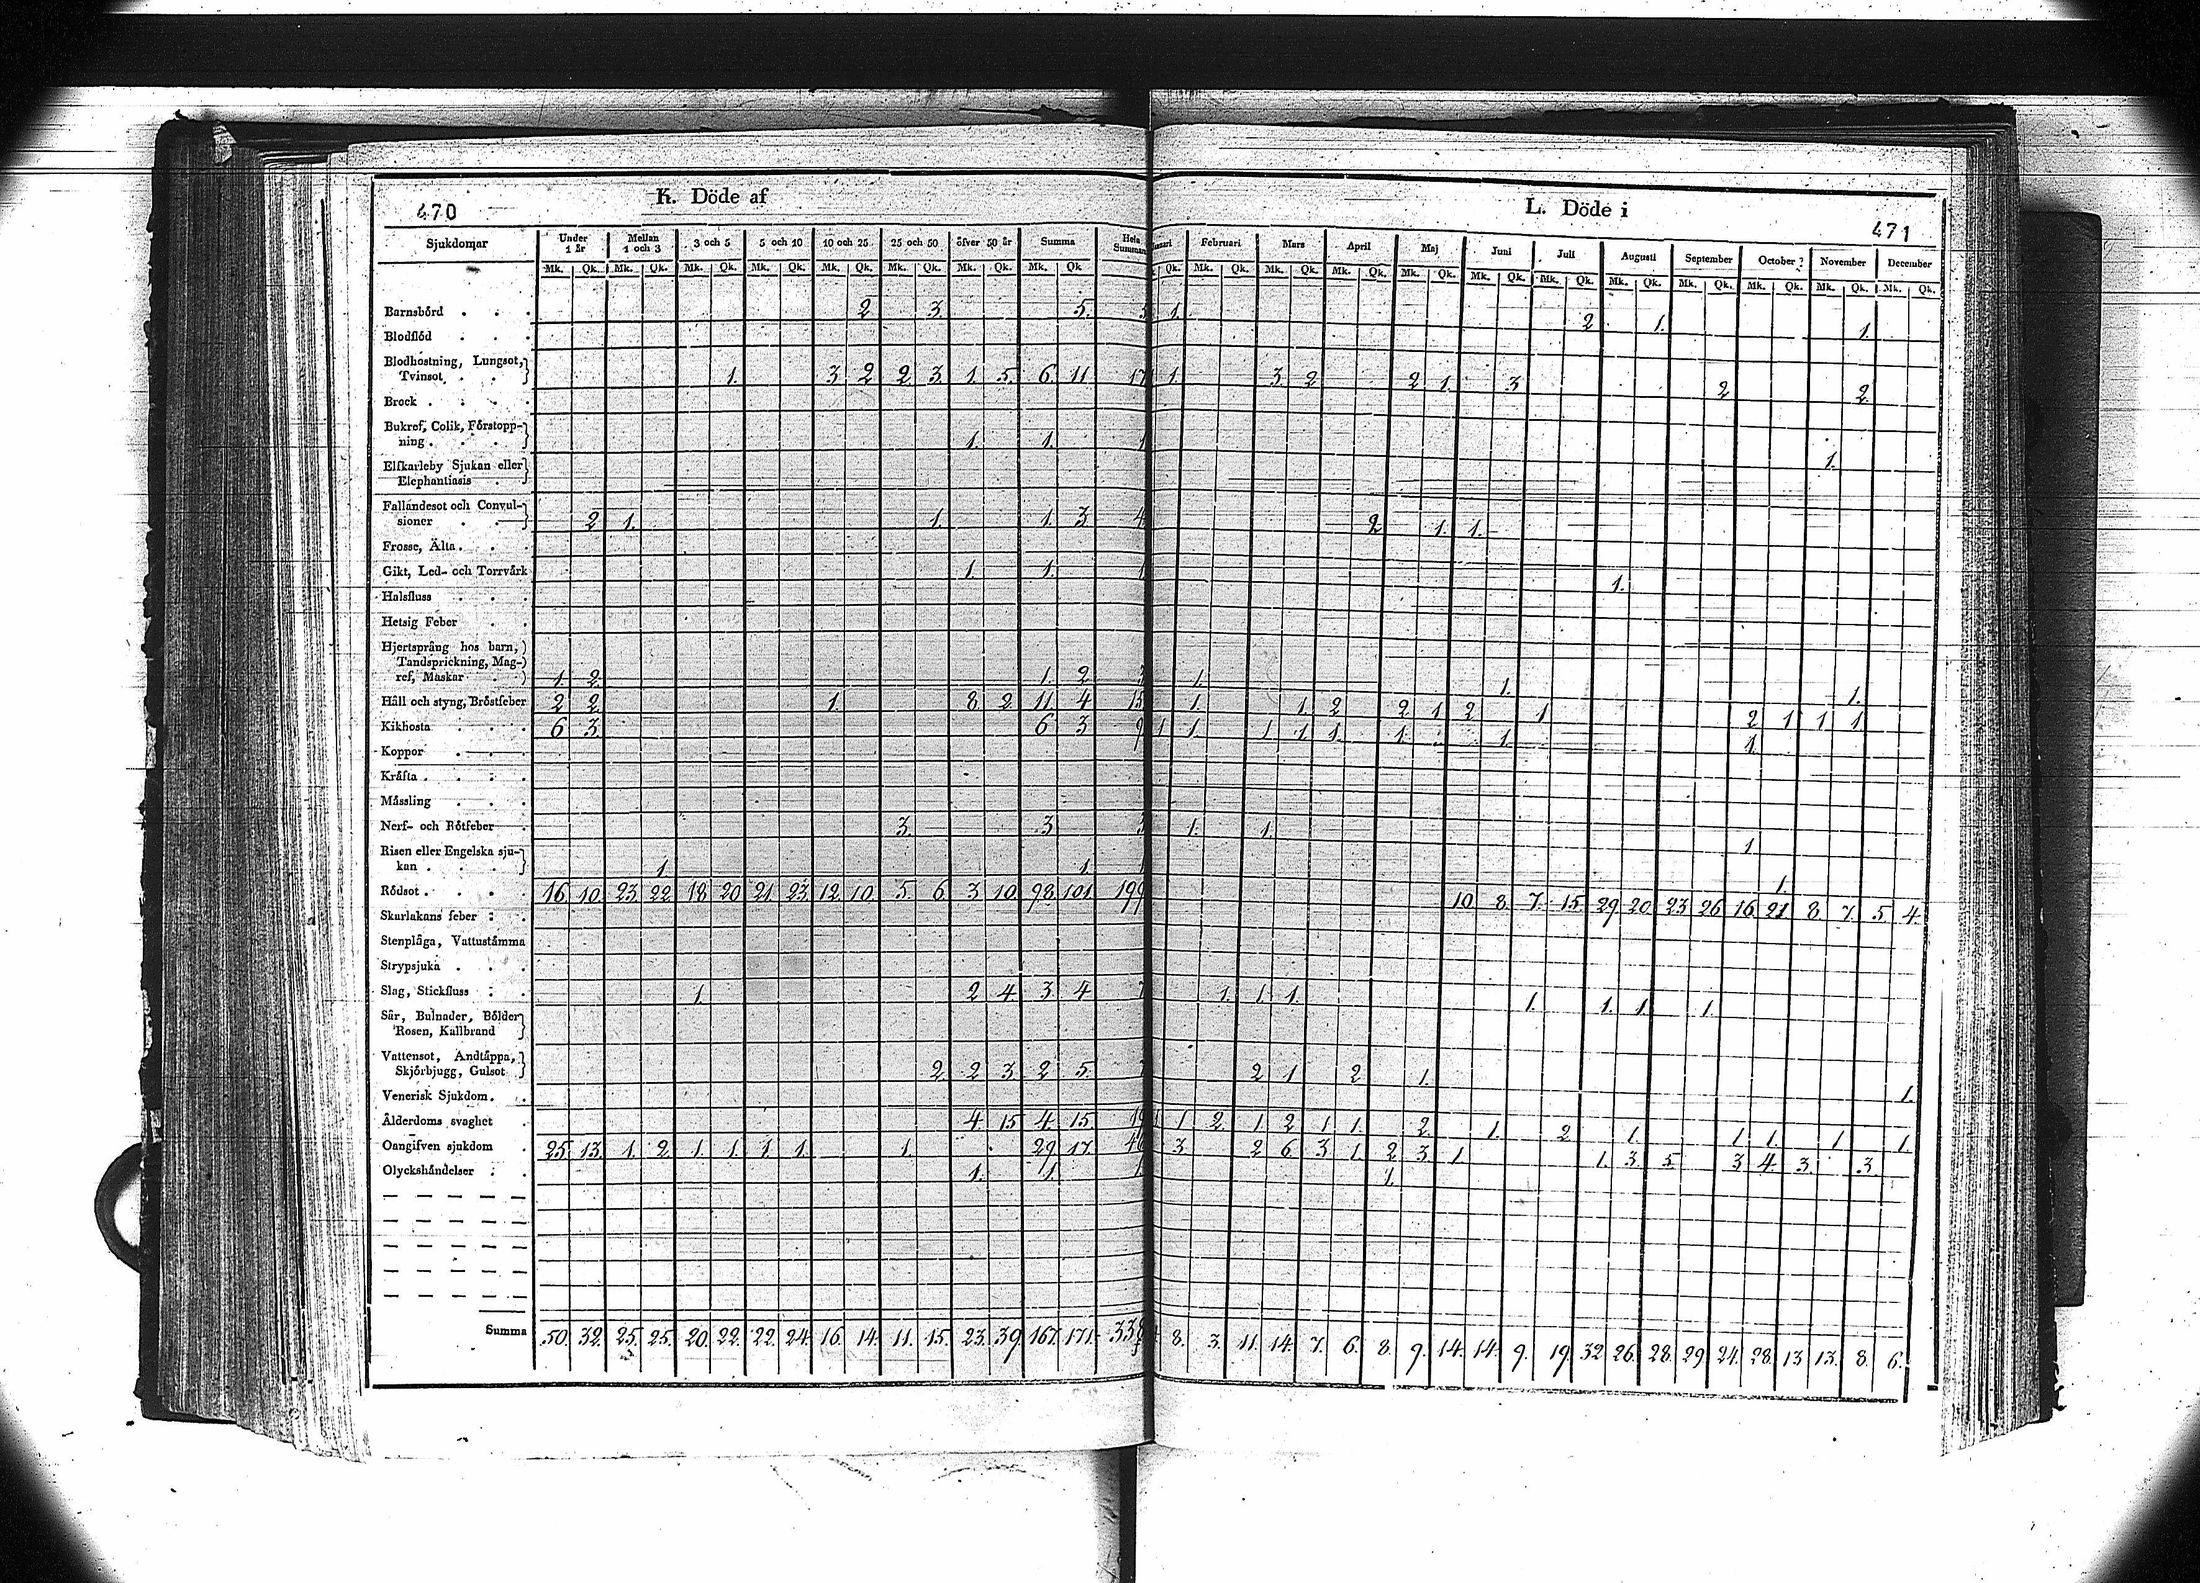 470
K. Döde af
L. Döde i
471
Sjukdomar Under 1 år Mellan 1 och 3 3 och 5 5 och 10 10 och 25 25 och 50 öfver 50 år Summa Hela Summan
Februari Mars April Maj Juni Juli Augusti September October November December
Mk. Qk. Mk. Qk. Mk. Qk. Mk. Qk. Mk. Qk. Mk. Qk. Mk. Qk. Mk. Qk.
Qk. Mk. Qk. Mk. Qk. Mk. Qk. Mk. Qk. Mk. Qk. Mk. Qk. Mk. Qk. Mk. Qk. Mk. Qk. Mk. Qk. Mk. Qk.
Barnsbörd 2 3. 5. 5 1. 2 1. 1.
Blodflöd
Blodhostning, Lungsot,
Tvinsot 1. 3 2 2 3 1. 5. 6. 11 17 1. 3. 2 2 1. 3 2 2.
Brock
Bukref, Colik, Förstopp-
ning 1. 1. 1 1.
Elfkarleby Sjukan eller
Elephantiasis
Fallandesot och Convul-
sioner 2 1. 1. 1. 3 4 2 1. 1.
Frosse, Älta
Gikt, Led- och Torrvärk 1. 1. 1 1.
Halsfluss
Hetsig Feber
Hjertsprång hos barn,
Tandsprickning, Mag-
ref, Maskar 1. 2. 1. 2 3 1. 1. 1.
Håll och styng, Bröstfeber 2 2 1. 8 2 11. 4 15 1. 1. 2 2 1 2 1 2 1 1 1
Kikhosta 6 3 6 3 9 1 1. 1. 1. 1. 1. 1. 1.
Koppor
Kräfta
Mässling
Nerf- och Rötfeber 3. 3 3 1. 1. 1
Risen eller Engelska sju-
kan 1 1. 1 1.
Rödsot 16. 10. 23. 22. 18. 20. 21. 23. 12. 10. 5. 6. 3. 10. 98. 101. 199 10 8. 7. 15. 29. 20. 23 26 16. 21 8. 7. 5 4.
Skarlakans feber
Stenplåga, Vattustämma
Strypsjuka
Slag, Stickfluss 1. 2 4 3 4 7 1. 1. 1. 1. 1. 1. 1.
Sår, Bulnader, Bölder
Rosen, Kallbrand
Vattensot, Andtäppa,
Skjörbjugg, Gulsot 2. 2 3 2 5. 7 2 1. 2 1. 1.
Venerisk Sjukdom
Ålderdoms svaghet 4 15 4 15. 19 1 1. 2. 1. 2 1 1. 2. 1. 2 1. 1. 1. 1 1.
Oangifven sjukdom 25. 13. 1. 2. 1. 1. 1. 1. 1. 29. 17. 46 3. 2 6. 3 1. 2 3. 1. 1. 3. 5 3 4. 3. 3.
Olyckshändelser 1. 1. 1 1.
Summa 50. 32. 25. 25. 20. 22. 22. 24. 16. 14. 11. 15. 23. 39. 167. 171. 338 8. 3. 11. 14. 7. 6. 8. 9. 14. 14. 9. 19. 32 26. 28. 29 24. 28. 13 13. 8. 6.